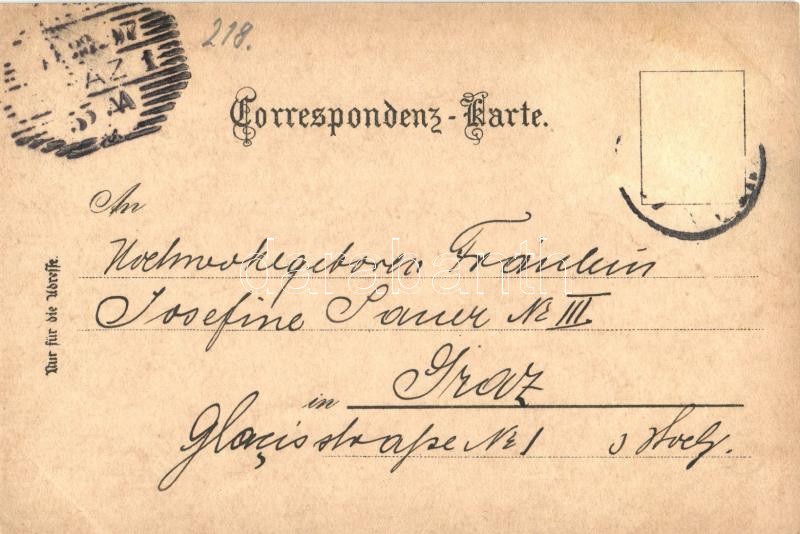 218.
AZ 1
Correspondenz-Karte.
An
Hochwohlgeboren Fräulein
darabanth
Josefine Sauer № III.
in Graz
Glacisstraße № 1 3 Stock.
Nur für die Adresse.